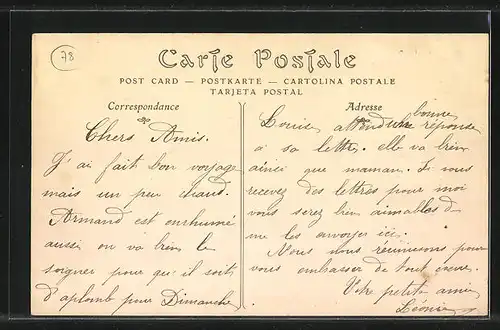 78
Carte Postale
POST CARD — POSTKARTE — CARTOLINA POSTALE
TARJETA POSTAL
Correspondance
Chers Amis.
J'ai fait bon voyage
mais un peu chaud.
Armand est enrhumé
aussi on va bien le
soigner pour qu'il soit
d'aplomb pour Dimanche
Adresse
bonne
Louise attend une réponse
à sa lettre. elle va bien
ainsi que maman. Si vous
recevez des lettres pour moi
vous serez bien aimables d
me les envoyer ici.
Nous nous réunissons pour
vous embrasser de tout cœur.
Votre petite amie
Léonie